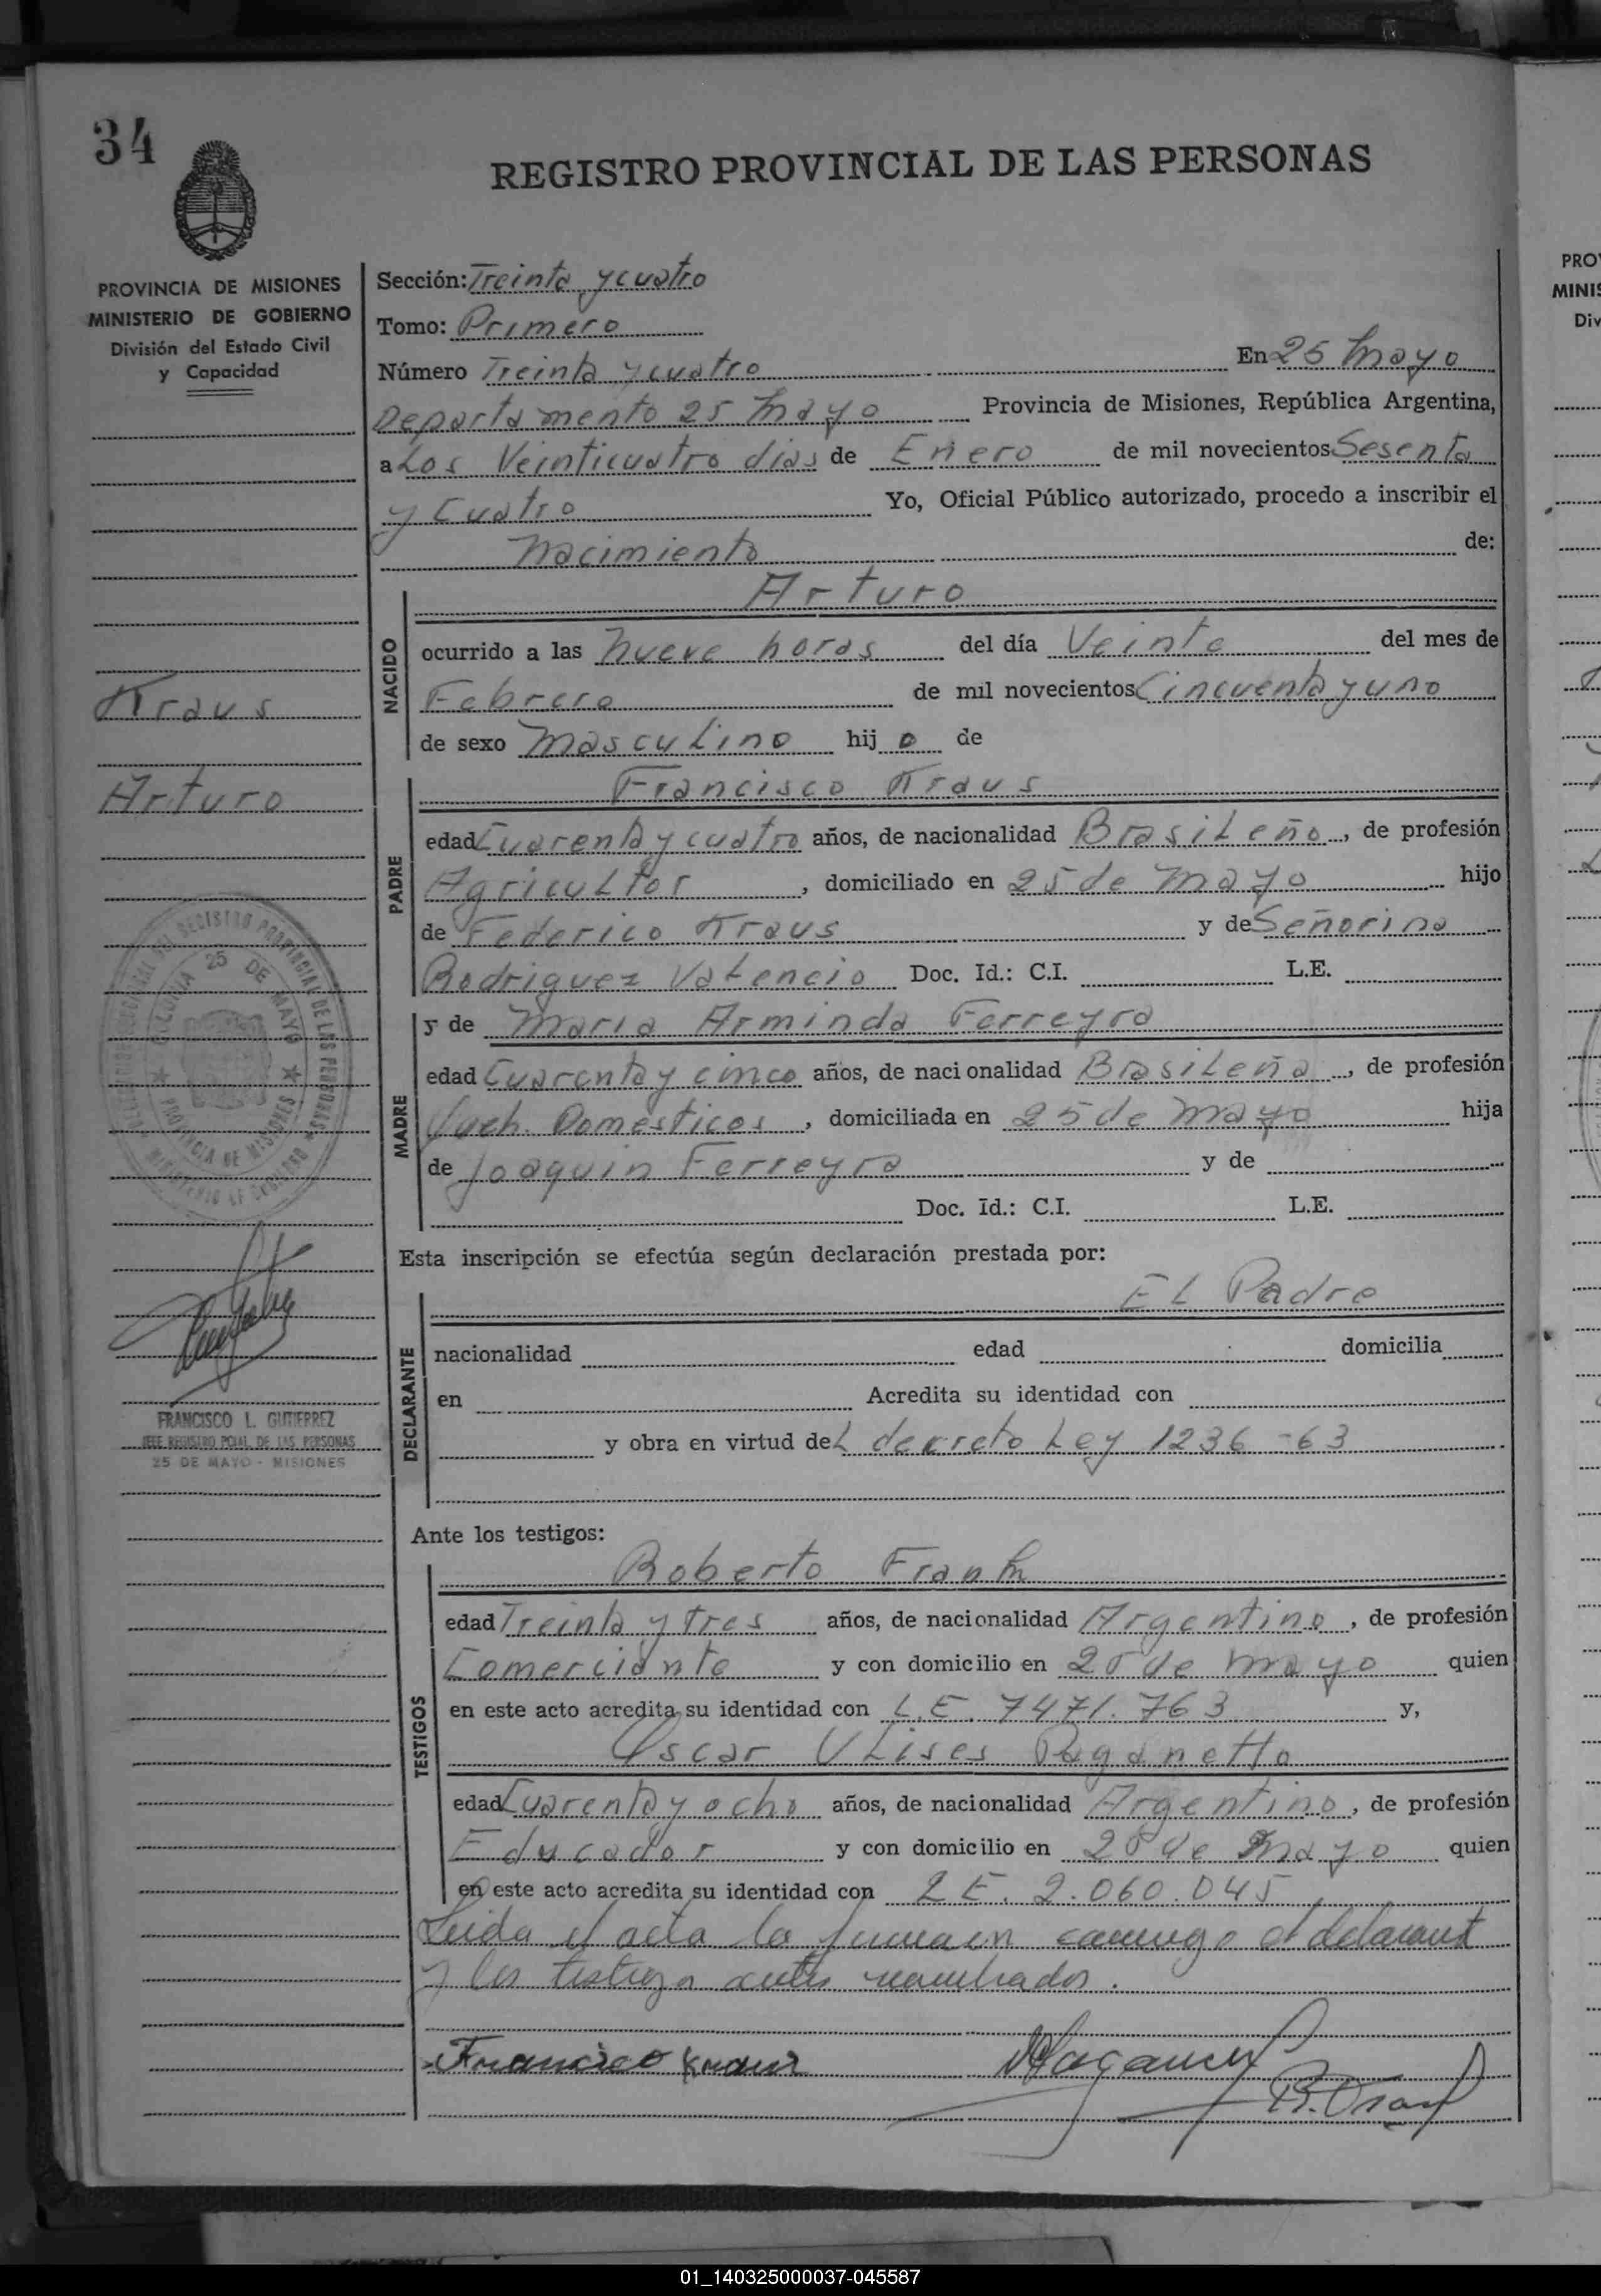 34
REGISTRO PROVINCIAL DE LAS PERSONAS
PROVINCIA DE MISIONES
MINISTERIO DE GOBIERNO
División del Estado Civil
y Capacidad
Kraus
Arturo
COLONIA 25 DE MAYO
PROVINCIA DE MISIONES
FRANCISCO L. GUTIERREZ
JEFE REGISTRO PCIAL. DE LAS PERSONAS
25 DE MAYO - MISIONES
Sección: Treinta y cuatro
Tomo: Primero
Número Treinta y cuatro En 25 Mayo
Departamento 25 Mayo Provincia de Misiones, República Argentina,
a Los Veinticuatro dias de Enero de mil novecientos Sesenta
y Cuatro Yo, Oficial Público autorizado, procedo a inscribir el
Nacimiento de:
NACIDO
Arturo
ocurrido a las Nueve horas del día Veinte del mes de
Febrero de mil novecientos Cincuenta y uno
de sexo Masculino hij o de
PADRE
Francisco Kraus
edad Cuarenta y cuatro años, de nacionalidad Brasileño, de profesión
Agricultor, domiciliado en 25 de Mayo hijo
de Federico Kraus y de Señorina
Rodriguez Valencio Doc. Id.: C.I. L.E.
MADRE
y de Maria Arminda Ferreyra
edad Cuarenta y cinco años, de nacionalidad Brasileña, de profesión
Queh. Domésticos, domiciliada en 25 de Mayo hija
de Joaquin Ferreyra y de
Doc. Id.: C.I. L.E.
Esta inscripción se efectúa según declaración prestada por:
DECLARANTE
El Padre
nacionalidad edad domicilia
en Acredita su identidad con
y obra en virtud del decreto Ley 1236-63
Ante los testigos:
TESTIGOS
Roberto Frank
edad Treinta y tres años, de nacionalidad Argentino, de profesión
Comerciante y con domicilio en 25 de Mayo quien
en este acto acredita su identidad con L.E. 7471.763 y,
Oscar Ulises Paganetto
edad Cuarenta y ocho años, de nacionalidad Argentino, de profesión
Educador y con domicilio en 25 de Mayo quien
en este acto acredita su identidad con LE. 2.060.045
Leida el acta la firman conmigo el declarant
y los testigos antes nombrados.
Francisco Kraus
PRO
MINIS
Div
01_140325000037-045587